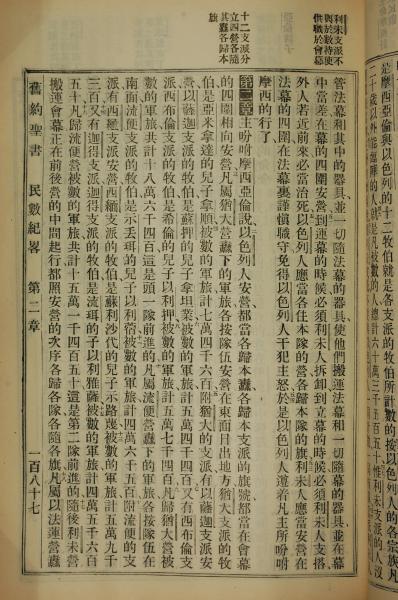 是摩西亞倫與以色列的十二牧伯就是各支派的牧伯所計
利未支派不
與於數特使
供職於會幕
十二支派分
立四營各隨
其纛各歸本
旗
管法幕和其中的器具並一切隨法幕的器具使他們搬運法幕和一切隨幕的器具並在幕
中當差在幕的四圍安營到運幕的時候必須利未人拆卸到立幕的時候必須利未人支搭
外人若近前來必當治死以色列人應當各住本隊的營各歸本隊的旗利未人應當安營在
法幕的四圍在法幕裏謹愼職守免得以色列人干犯主怒於是以色列人遵着凡主所吩咐
摩西的行了
第二章主吩咐摩西亞倫說以色列人安營都當各歸本纛各歸本支派的旗號都當在會幕
的四圍相向安營凡屬猶大營纛下的軍旅各按隊伍安營在東面日出地方猶大支派的牧
伯是亞米拿達的兒子拿順被數的軍旅計七萬四千六百附猶大的支派有以薩迦支派安
營以薩迦支派的牧伯是蘇押的兒子拿坦業被數的軍旅計五萬四千四百又有西布倫支
派西布倫支派的牧伯是希倫的兒子以利押被數的軍旅計五萬七千四百凡歸猶大營被
數的軍旅共計十八萬六千四百這是頭一隊前進的凡屬流便營纛下的軍旅各按隊伍在
南面流便支派的牧伯是示丟珥的兒子以利蓿被數的軍旅計四萬六千五百附流便的支
派有西緬支派安營西緬支派的牧伯是蘇利沙代的兒子示路蔑被數的軍旅計五萬九千
三百又有迦得支派迦得支派的牧伯是流珥的子以利雅薩被數的軍旅計四萬五千六百
五十凡歸流便營被數的軍旅共計十五萬一千四百五十這是第二隊前進的隨後利未營
搬運會幕正在前後營的中間起行都照安營的次序各歸各隊各隨各旗凡屬以法蓮營纛
舊約聖書 民數紀畧 第二章 一百八十七